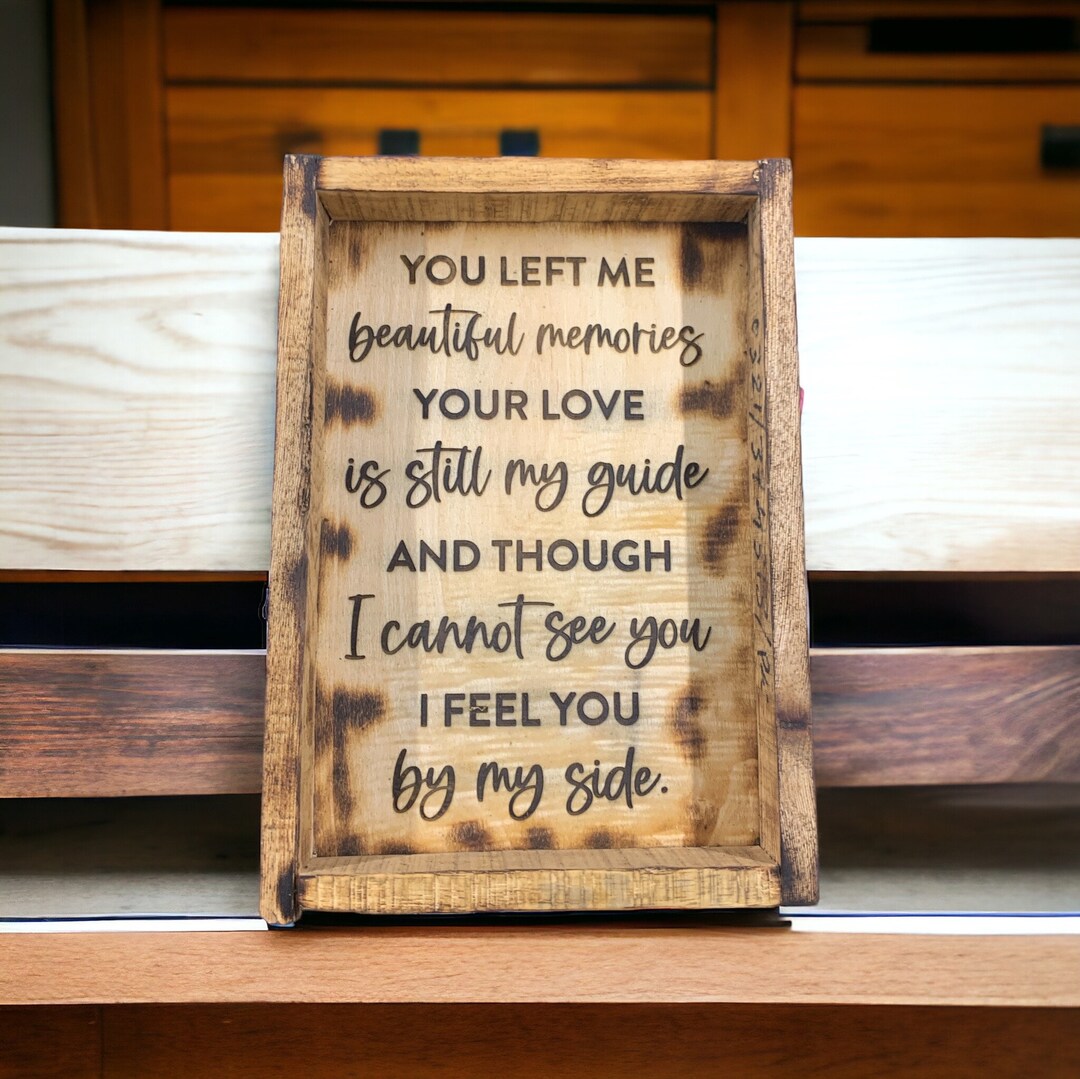 YOU LEFT ME
beautiful memories
YOUR LOVE
is still my guide
AND THOUGH
I cannot see you
I FEEL YOU
by my side.